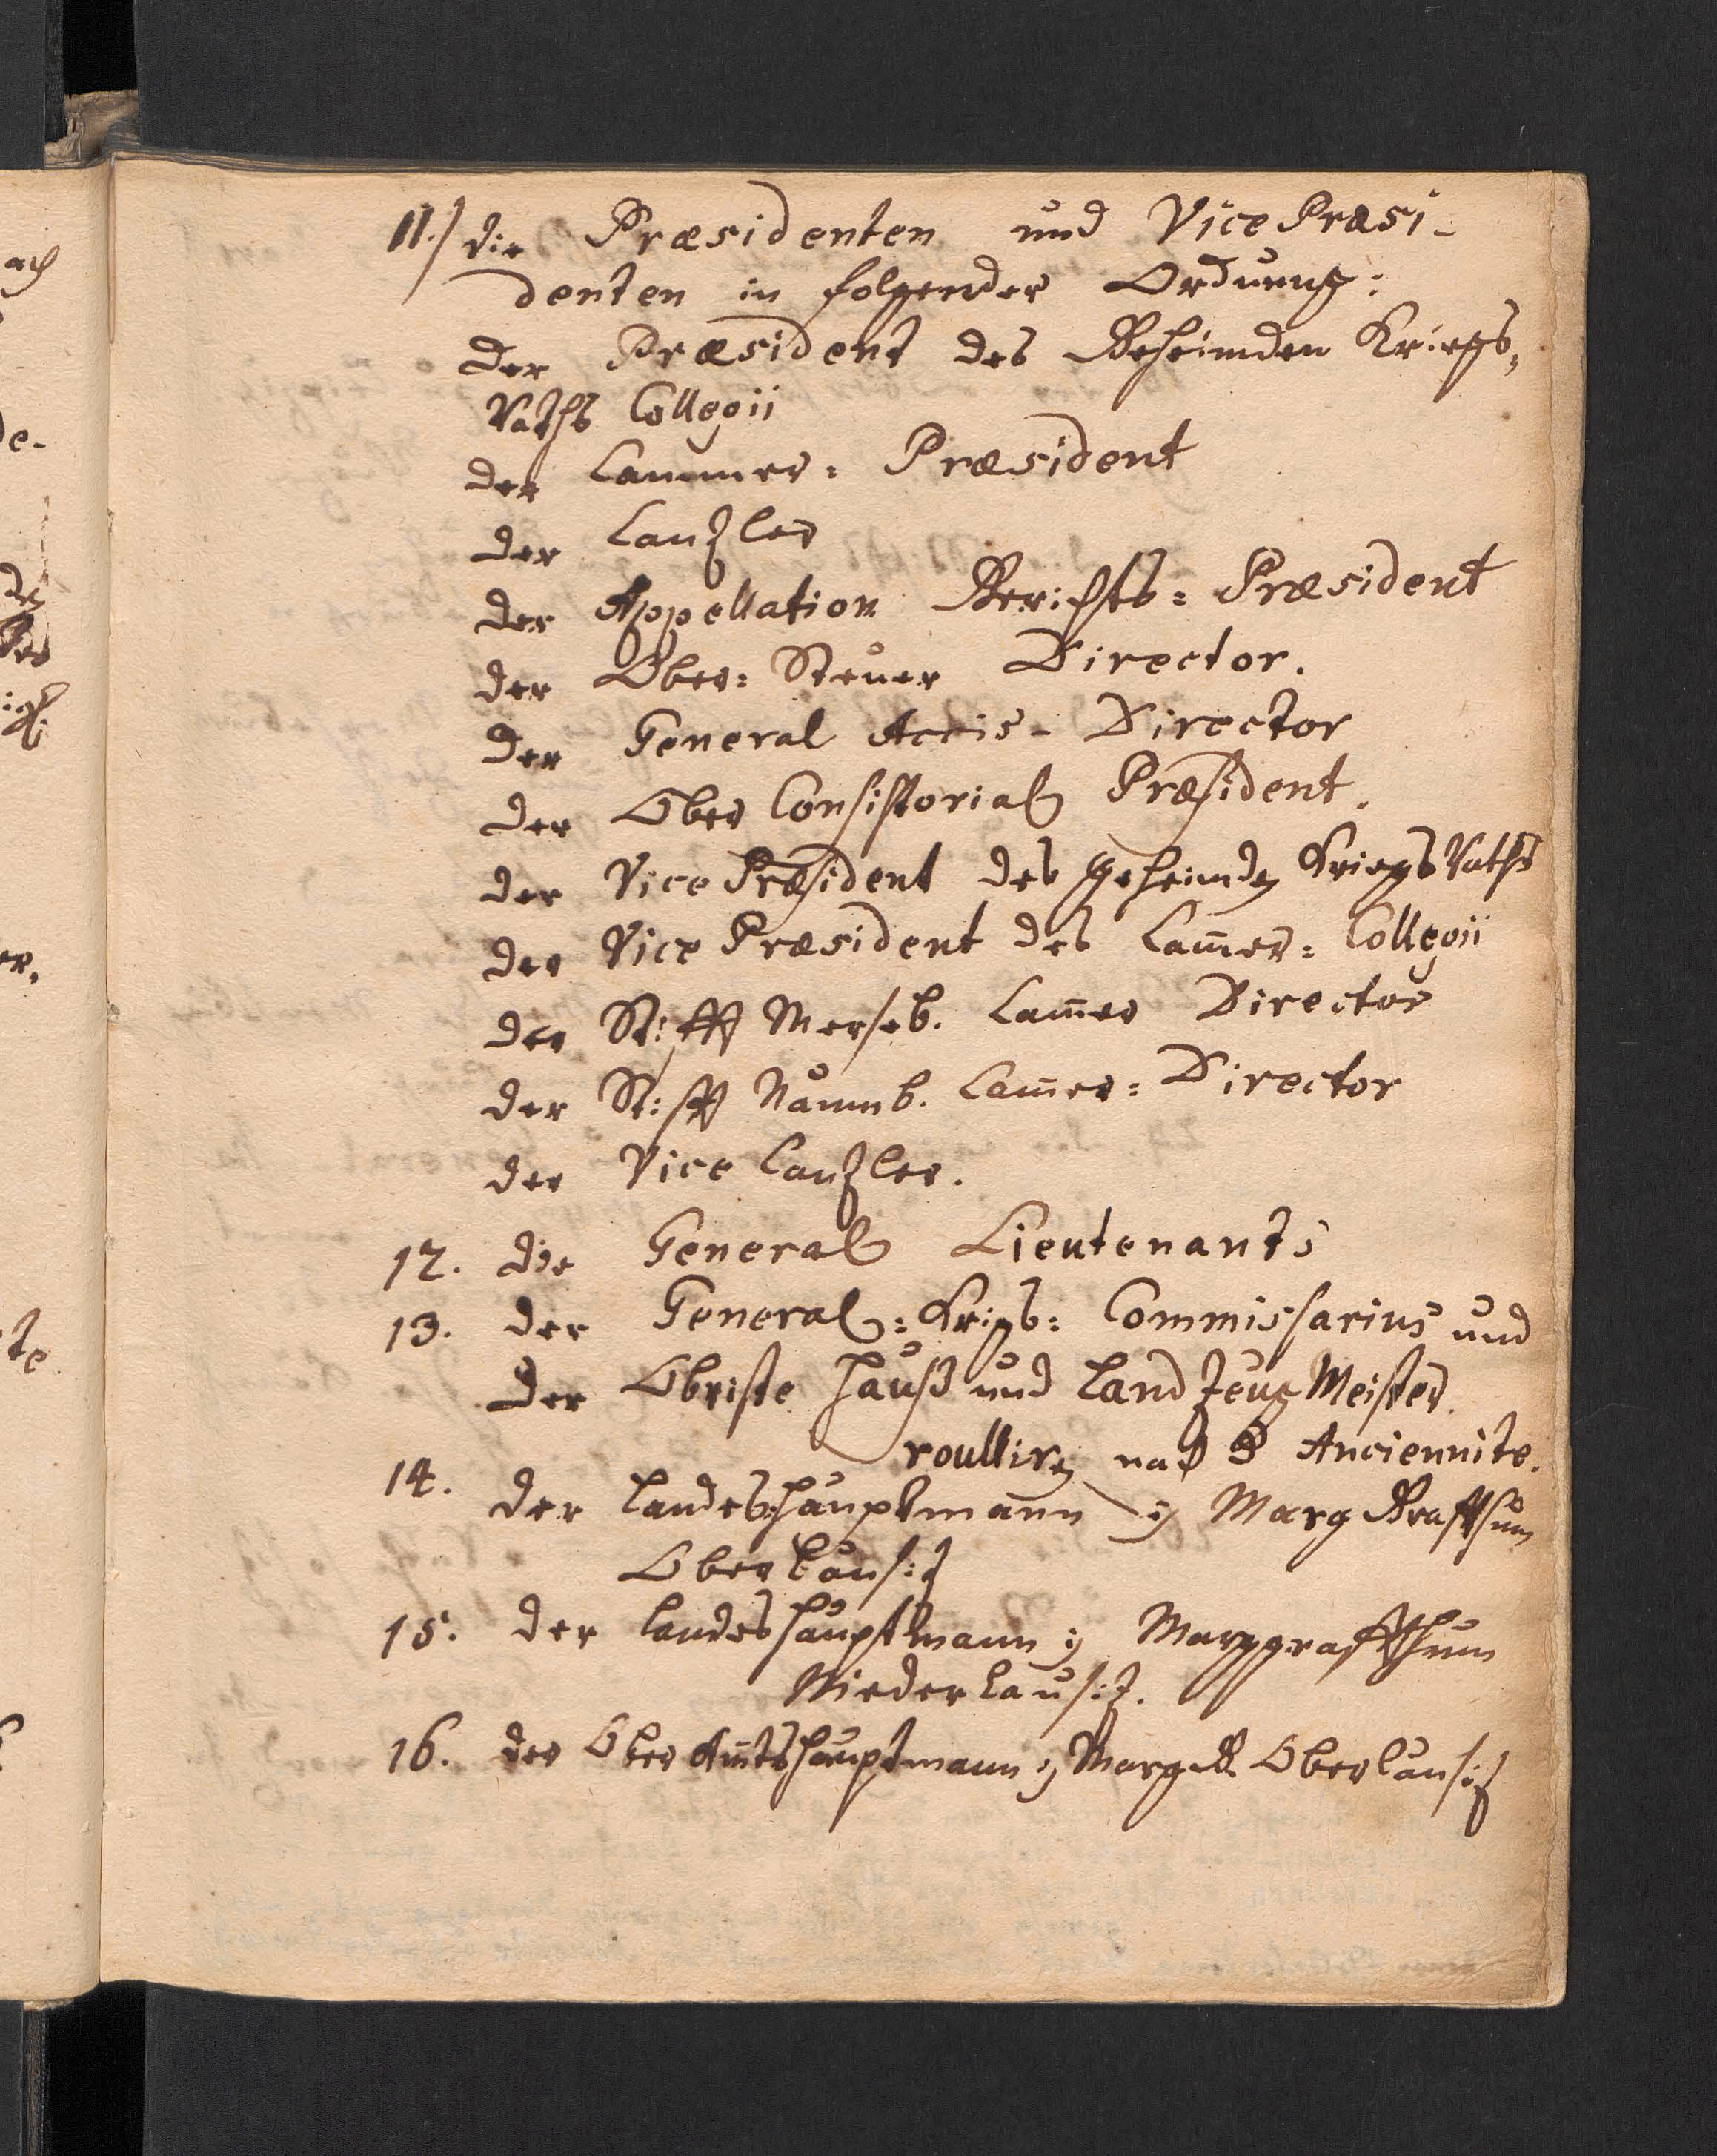 11./ die Præsidenten und Vice Præsi-
denten in folgender Ordnung:
Der Præsident des Geheimden Kriegs,
Raths Collegii
der Cammer: Præsident
der Canzler
der Appellation Gerichts: Præsident
der Ober: Steuer Director.
der General Accis- Director
der Ober Consistorial Præsident.
der Vice Præsident des geheimden Kriegs Raths
der Vice Præsident des Cam̅er: Collegii
der Stifft Merseb. Cam̅er Director
der Stifft Naumb. Cam̅er: Director
der Vice Canzler.
12. die General Lieutenants
13. der General: Kriegs: Commissarius und
der Obriste Hauß und Land Zeug Meister.
roulliren nach d Anciennite.
14. der Landeshauptmann in Marg Graffthum
Ober Lausitz
15. der Landeshauptmann in Marggraffthum
Nieder Lausitz.
16. der Ober Amtshauptmann in Marg. G. Oberlausitz